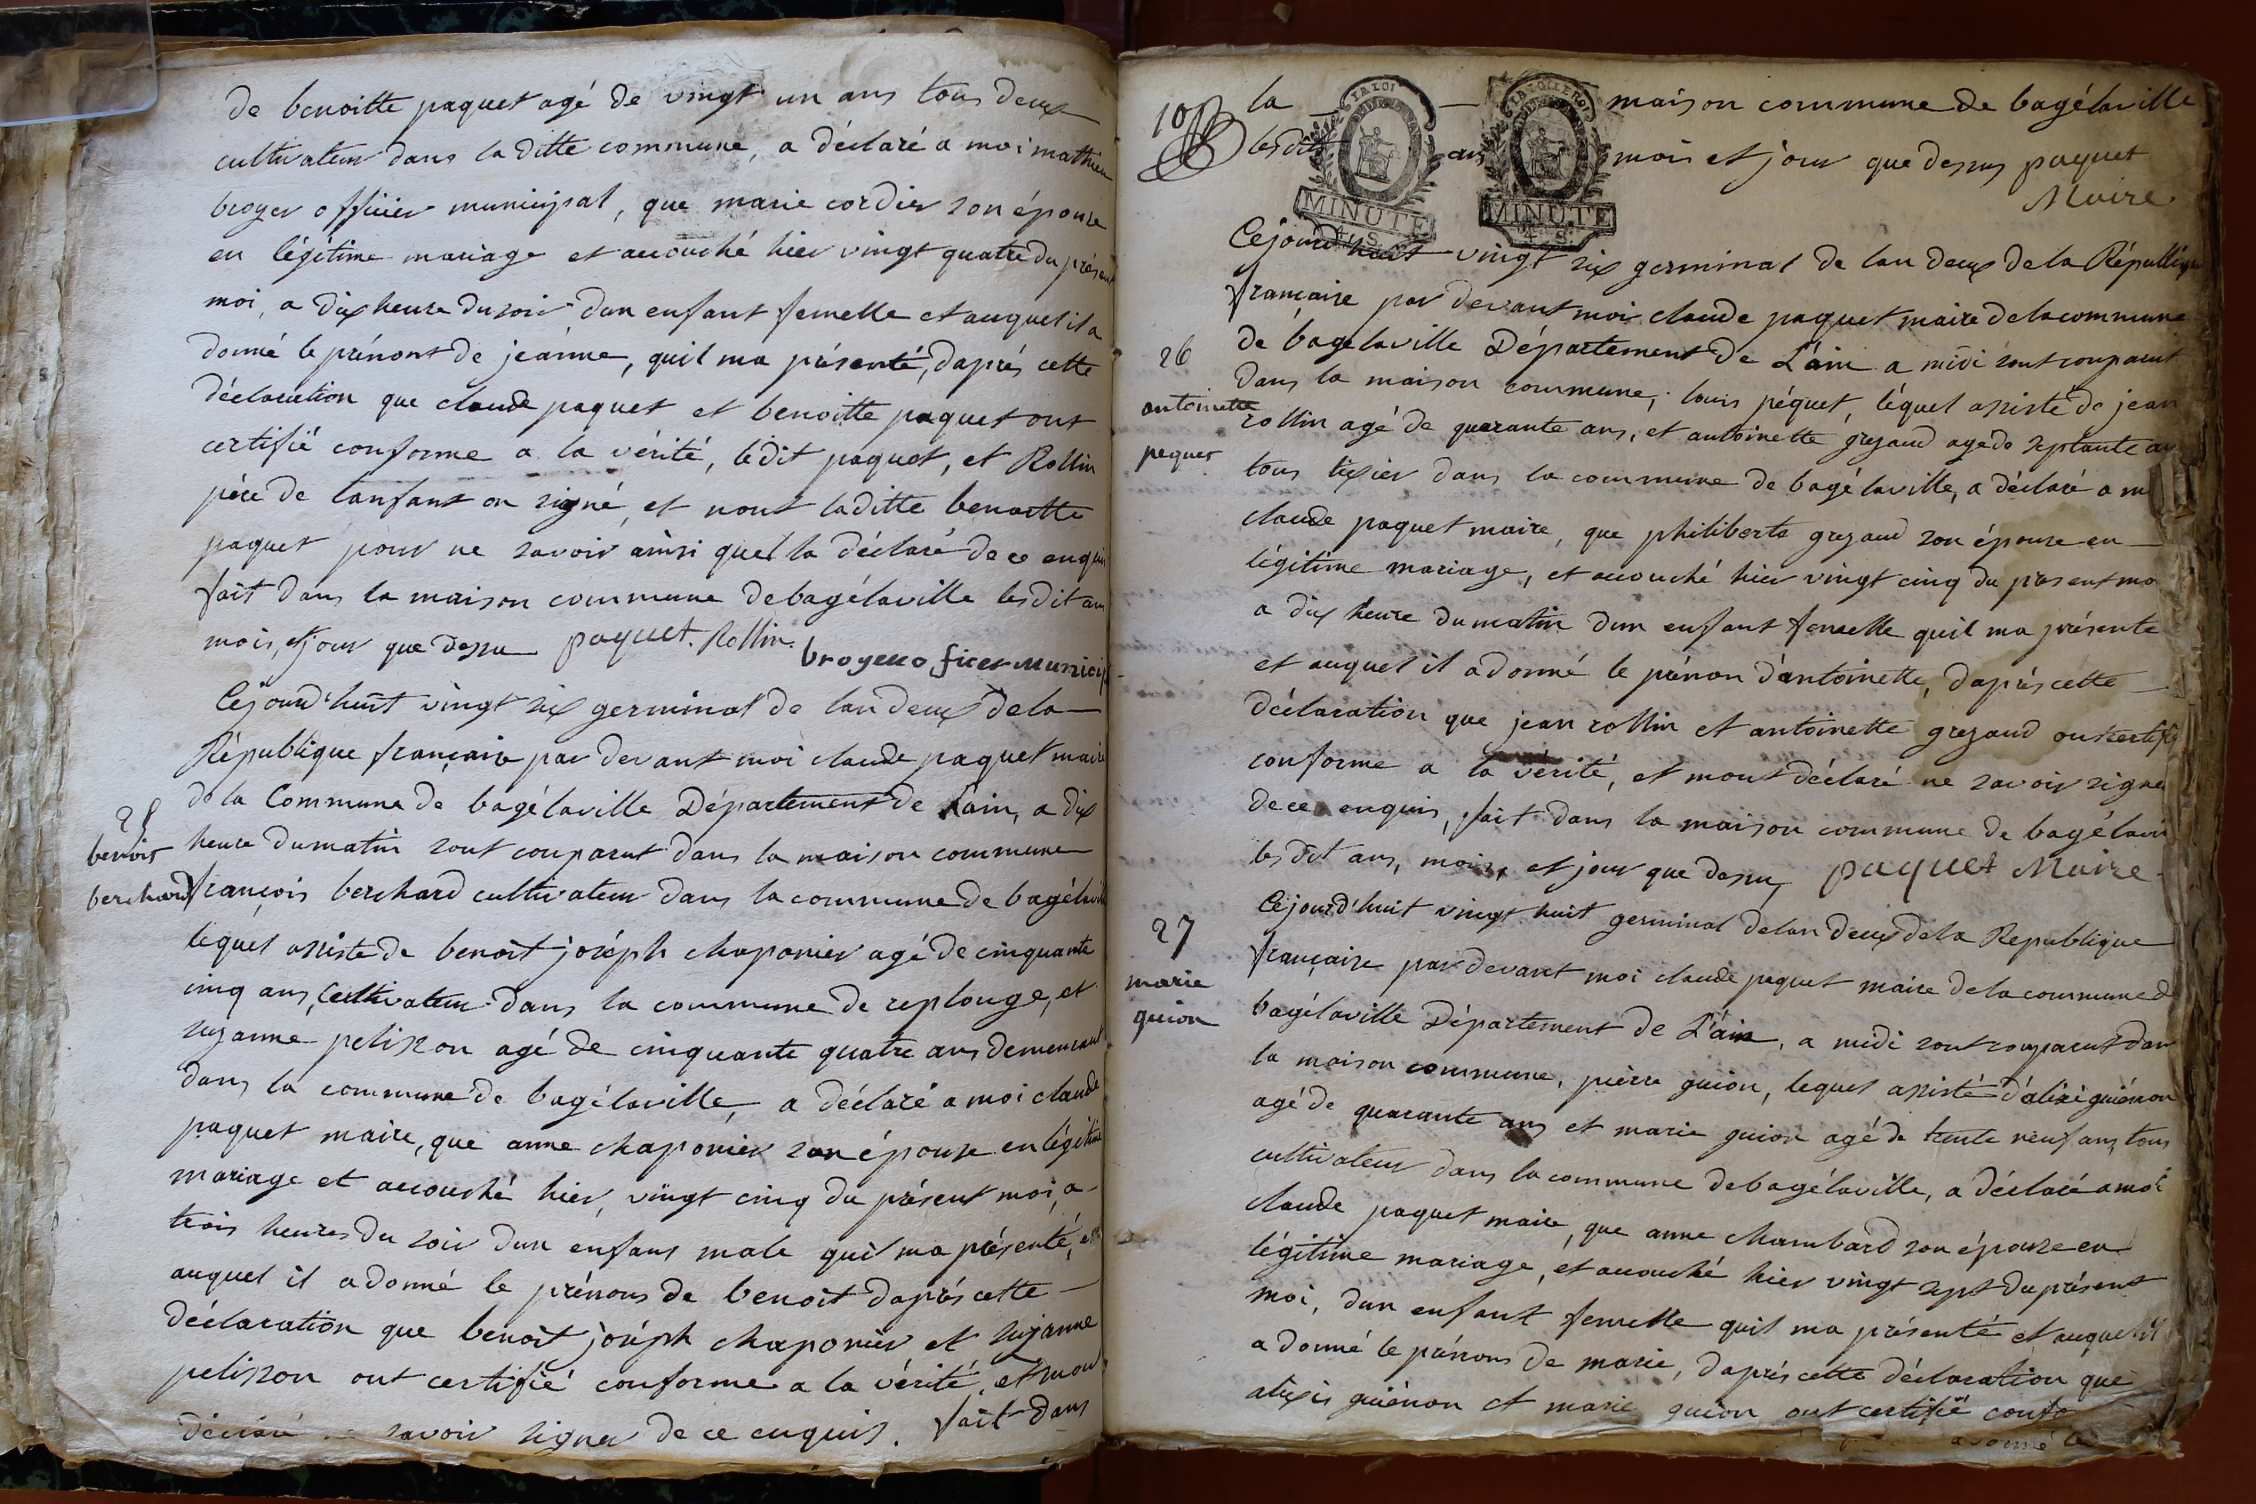 de benoitte paquet agé de vingt un ans tous deux
cultivateur dans la ditte commune, a déclaré a moi mathieu
broyer officier municipal, que marie cordier son épouse
en légitime mariage et accouché hier vingt quatre du présent
moi, a dix heure du soir dun enfant femelle et auquel il a
donné le prénont de jeanne, quil ma présenté, daprés cette
déclaration que claude paquet et benoitte paquet ont
certifié conforme a la vérité, lédit paquet, et Rollin
pére de lanfant on signé, et nont laditte benoitte
paquet pour ne savoir ainsi quel la déclaré de ce enquis
fait dans la maison commune debagélaville lesdit an
mois, et jour que dessu paquet. Rollin.
broyer oficer Municip
Cejourd'huit vingt six germinal de lan deux dela
République française par devant moi claude paquet maire
de la Commune de bagélaville Département de Lain, a dix
25
benoit
berchard
heure dumatin sont comparut dans la maison commune
françois berchard cultivateur dans la commune de bagélaville
lequel assiste de benoit joséph chaponier agé de cinquante
cinq ans, Cultivateur dans la commune de replonge, et
suzanne pelisson agé de cinquante quatre ans demeurant
dans la commune de bagélaville, a déclaré a moi claude
paquet maire, que anne chaponier son épouse en légitime
mariage et accouché hier, vingt cinq du présent moi, a
trois heures du soir dun enfans male quil ma présenté, et
auquel il a donné le prénons de benoit daprés cette
déclaration que benoit joséph chaponier et suzanne
pelisson ont certifié conforme a la vérité, et mon
déclaré savoir signer de ce enquis. fait dans
10
la maison commune de bagélaville
lesdit ans mois et jour que dessus paquet
Maire
LA LOI
LA LOI LE ROI
MINUTE
4. S.
MINUTE
4. S.
Cejourd'huit vingt six germinal de lan deux de la République
française par devant moi claude paquet maire delacommune
26
antoinette
pequet
de bagelaville Département de L'ain a midi sont comparut
dans la maison commune; louis péquet, léquel assisté de jean
rollin agé de quarante ans, et antoinette grezaud agéde septante an
tous tixier dans la commune de bagélaville, a déclaré a m
claude paquet maire, que philiberte grezaud son épouse en
légitime mariage, et accouché hier vingt cinq du present mo
a dix heure du matin dun enfant femelle quil ma présente
et auquel il adonné le prénon d'antoinette, daprés cette
déclaration que jean rollin et antoinette grezaud ont certifi
conforme a la vérité, et mont déclaré ne savoir signe
de ce enquis, fait dans la maison commune de bagélavi
les dit ans, mois, et jour que dessus, paquet Maire
27
marie
guion
Cejourd'huit vingt huit germinal delan deux dela Republique
française par devant moi claude paquet maire dela commune d
bagélaville Département de L'ain, a midi sont comparut dan
la maison commune, pierre guion, lequel assisté d'alixi guiénon
agé de quarante ans et marie guion agé de trente neuf ans, tous
cultivateur dans la commune debagélaville, a déclaré a moi
claude paquet maire, que anne chambard son épouse en
légitime mariage, et accouché hier vingt sept du présent
moi, dun enfant femelle quil ma présenté et auquel il
a donné le prénons de marie, daprés cette déclaration que
alixis guiénon et marie guion ont certifié confo
a donné le